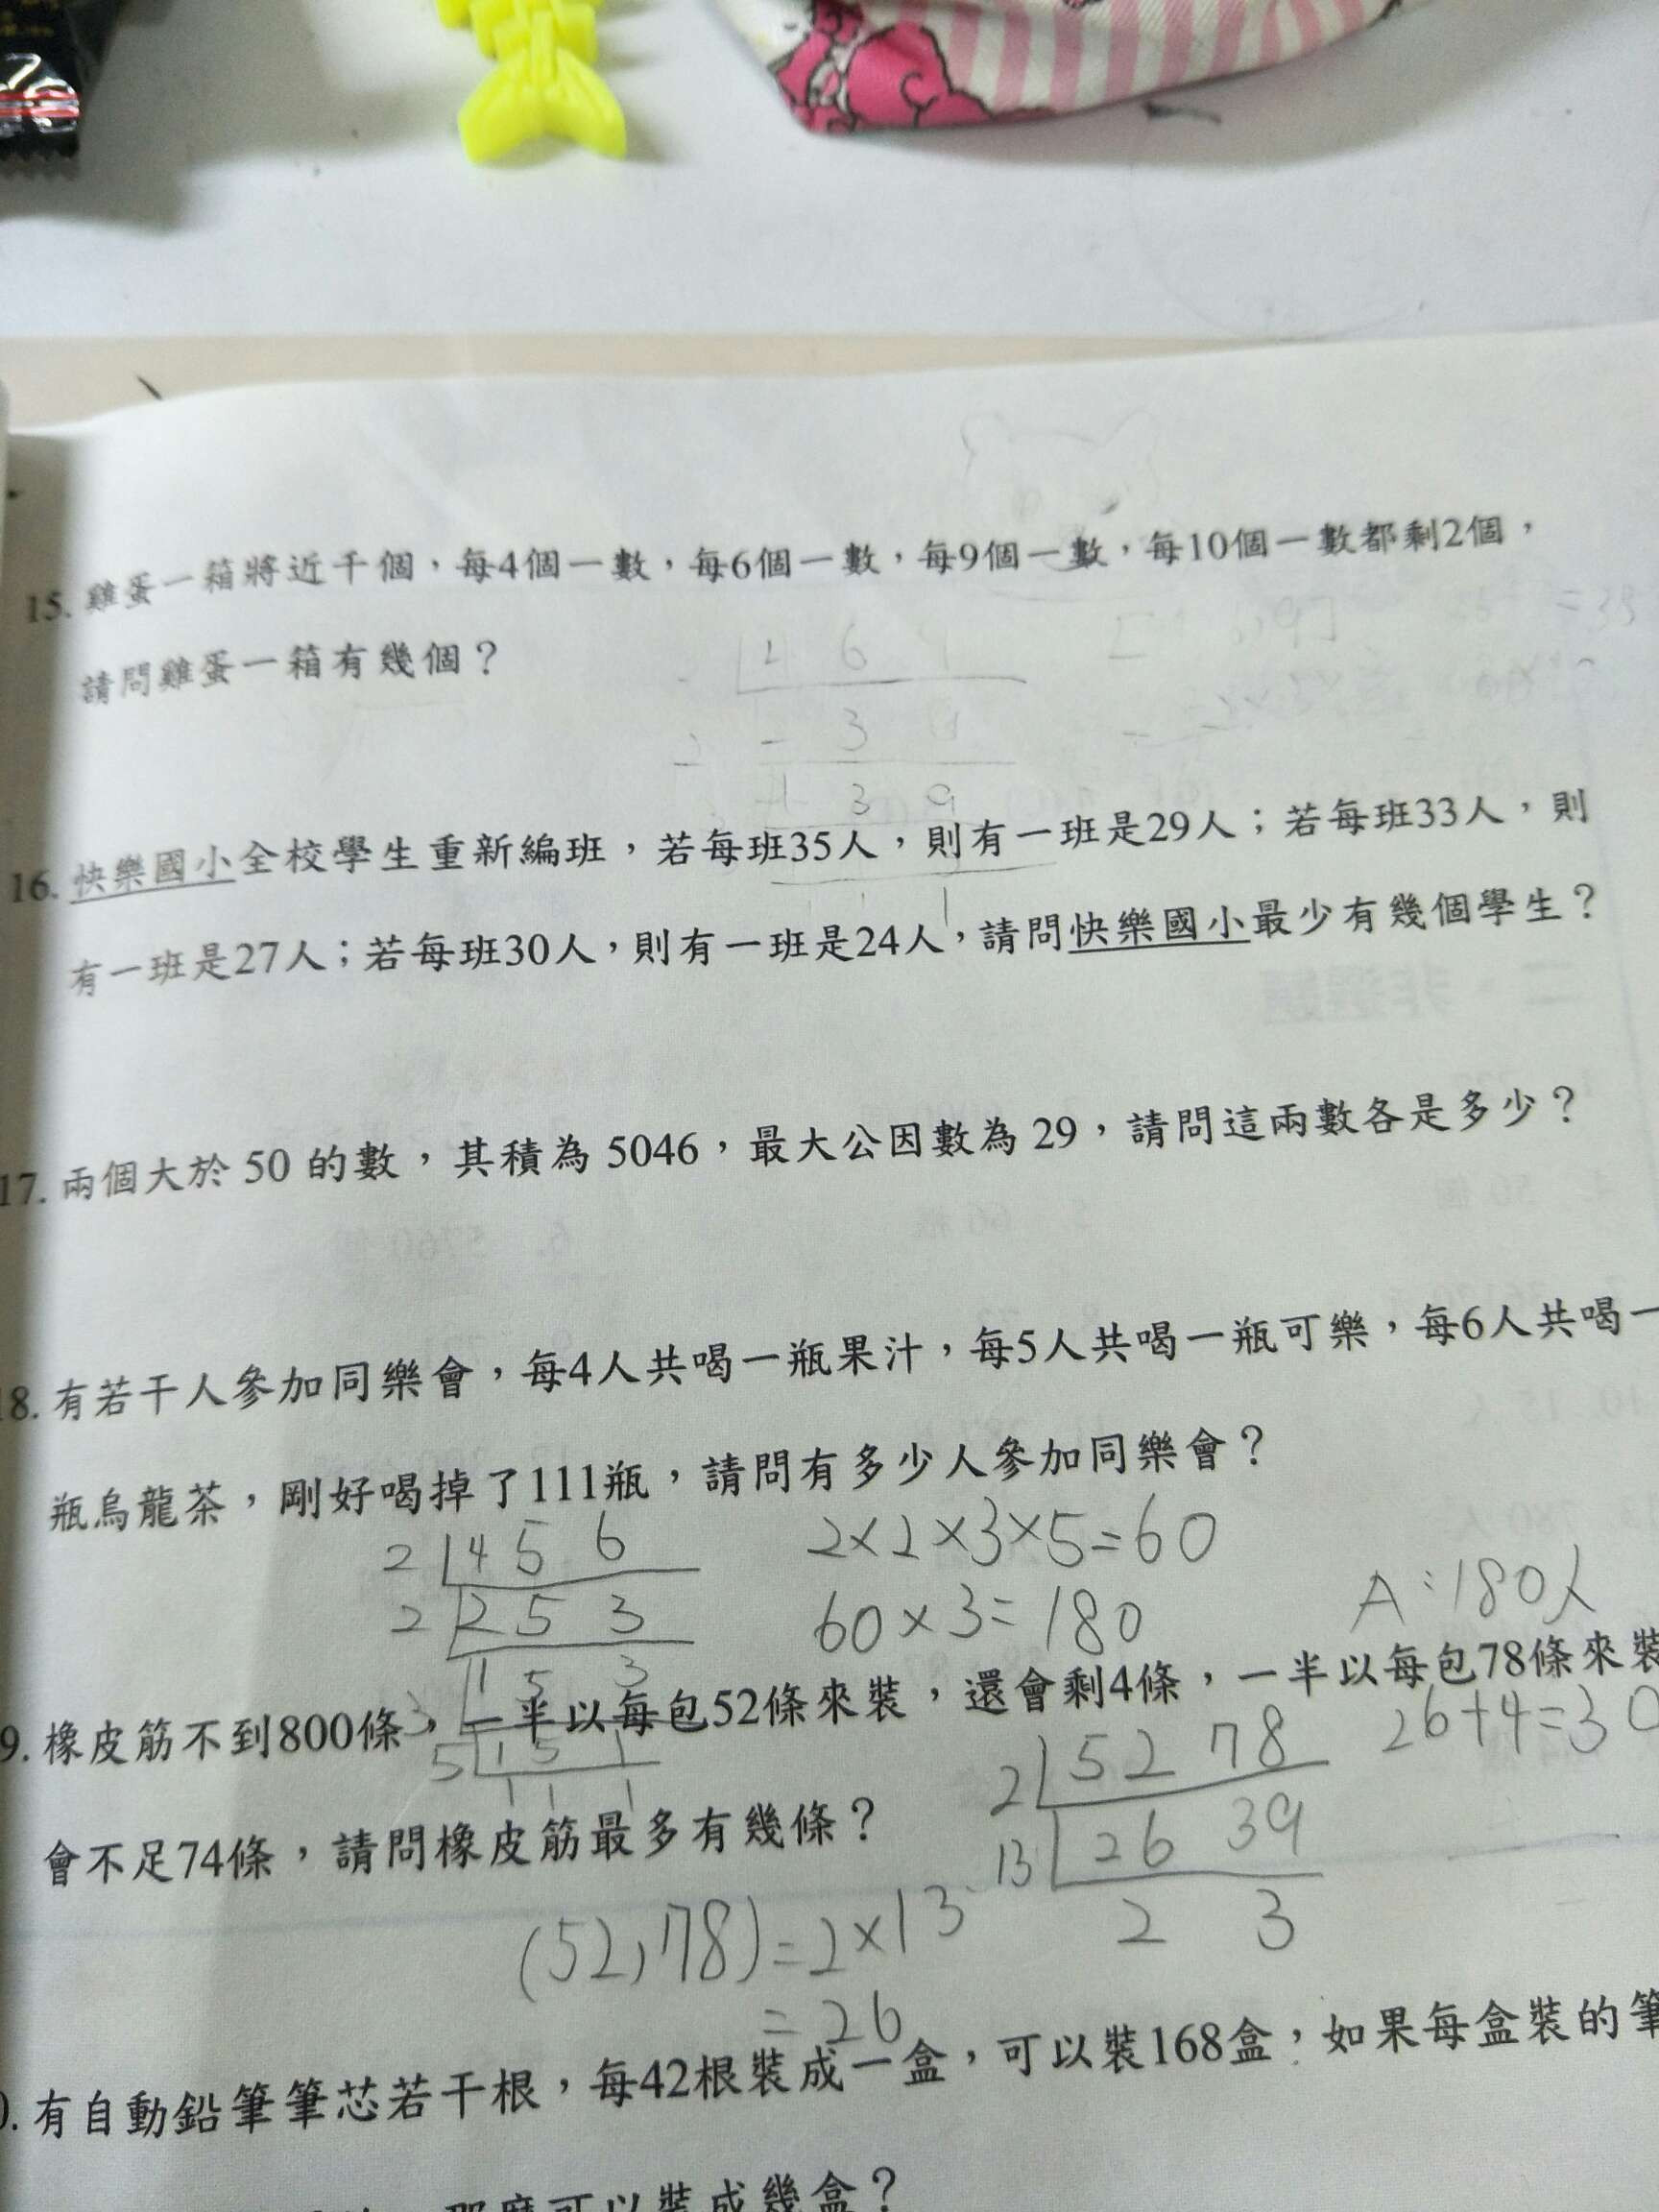 15. 雞蛋一箱將近千個，每4個一數，每6個一數，每9個一數，每10個一數都剩2個，
請問雞蛋一箱有幾個？
4 6
3 9
1 3 9
16. 快樂國小全校學生重新編班，若每班35人，則有一班是29人；若每班33人，則
有一班是27人；若每班30人，則有一班是24人，請問快樂國小最少有幾個學生？
17. 兩個大於 50 的數，其積為 5046，最大公因數為 29，請問這兩數各是多少？
18. 有若干人參加同樂會，每4人共喝一瓶果汁，每5人共喝一瓶可樂，每6人共喝一
瓶烏龍茶，剛好喝掉了111瓶，請問有多少人參加同樂會？
2 4 5 6
2×2×3×5=60
2 2 5 3
60×3=180
A:180人
3 1 5 3
9. 橡皮筋不到800條，一半以每包52條來裝，還會剩4條，一半以每包78條來裝
5 1 5 1
1 1 1
2 52 78
26+4=30
會不足74條，請問橡皮筋最多有幾條？
13 26 39
2 3
(52,78)=2×13
=26
. 有自動鉛筆筆芯若干根，每42根裝成一盒，可以裝168盒，如果每盒裝的筆
可以裝成幾盒？